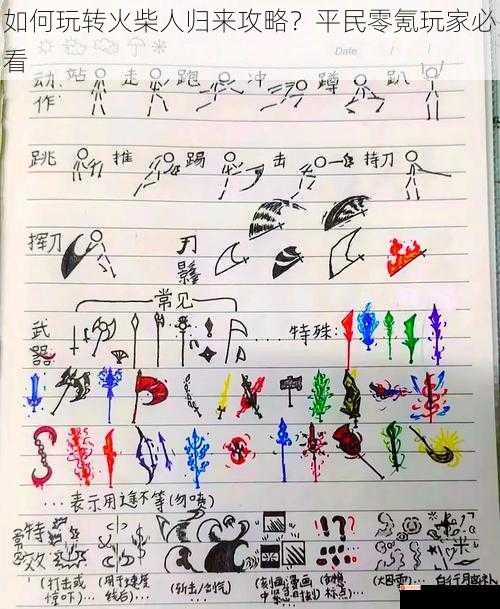 如何玩转火柴人归来攻略？平民零氪玩家必
看
Date: / /
动作: 站 走 跑 冲 蹲 趴
跳 推 踢 击 持刀
挥刀 刀影
常见
武器 …… 特殊:
…表示用途不等(勿喷)
常见特效
(打击或惊吓)… (用于速度线后)… (斩击/台气)
(大图雷)… 自行脑补